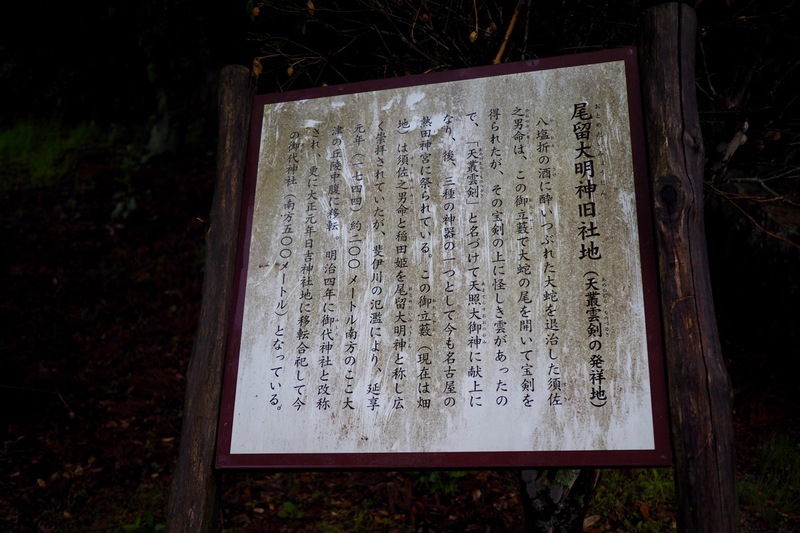 尾留大明神旧社地(天叢雲剣の発祥地)
八塩折の酒に酔いつぶれた大蛇を退治した須佐
之男命は、この御立薮で大蛇の尾を開いて宝剣を
得られたが、その宝剣の上に怪しき雲があったの
で、「天叢雲剣」と名づけて天照大御神に献上に
なり、後、三種の神器の一つとして今も名古屋の
熱田神宮に祭られている。この御立薮(現在は畑
地)は須佐之男命と稲田姫を尾留大明神と称し広
く崇拝されていたが、斐伊川の氾濫により、延享
元年(一七四四)約二〇〇メートル南方のここ大
津の丘陵中腹に移転 明治四年に御代神社と改称
され、更に大正元年日吉神社地に移転合祀して今
の御代神社(南方五〇〇メートル)となっている。